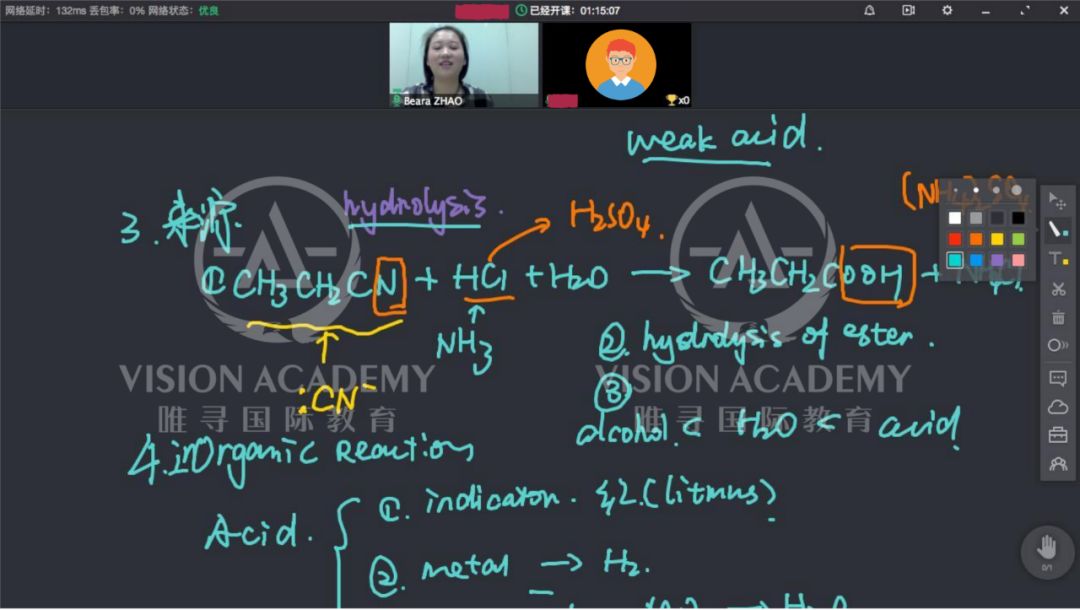 网络延时：132ms 丢包率：0% 网络状态：优良
已经开课：01:15:07
Beara ZHAO
x0
weak acid.
3. 来源. hydrolysis.
H2SO4.
① CH3CH2CN + HCl + H2O → CH3CH2COOH +
NH3
:CN⁻
②. hydrolysis of ester.
③
alcohol. < H2O < acid
VISION ACADEMY
唯寻国际教育
VISION ACADEMY
唯寻国际教育
4. inorganic Reaction
Acid.
①. indicator. 红.(litmus)
②. metal → H2.
→ H2O
0/1